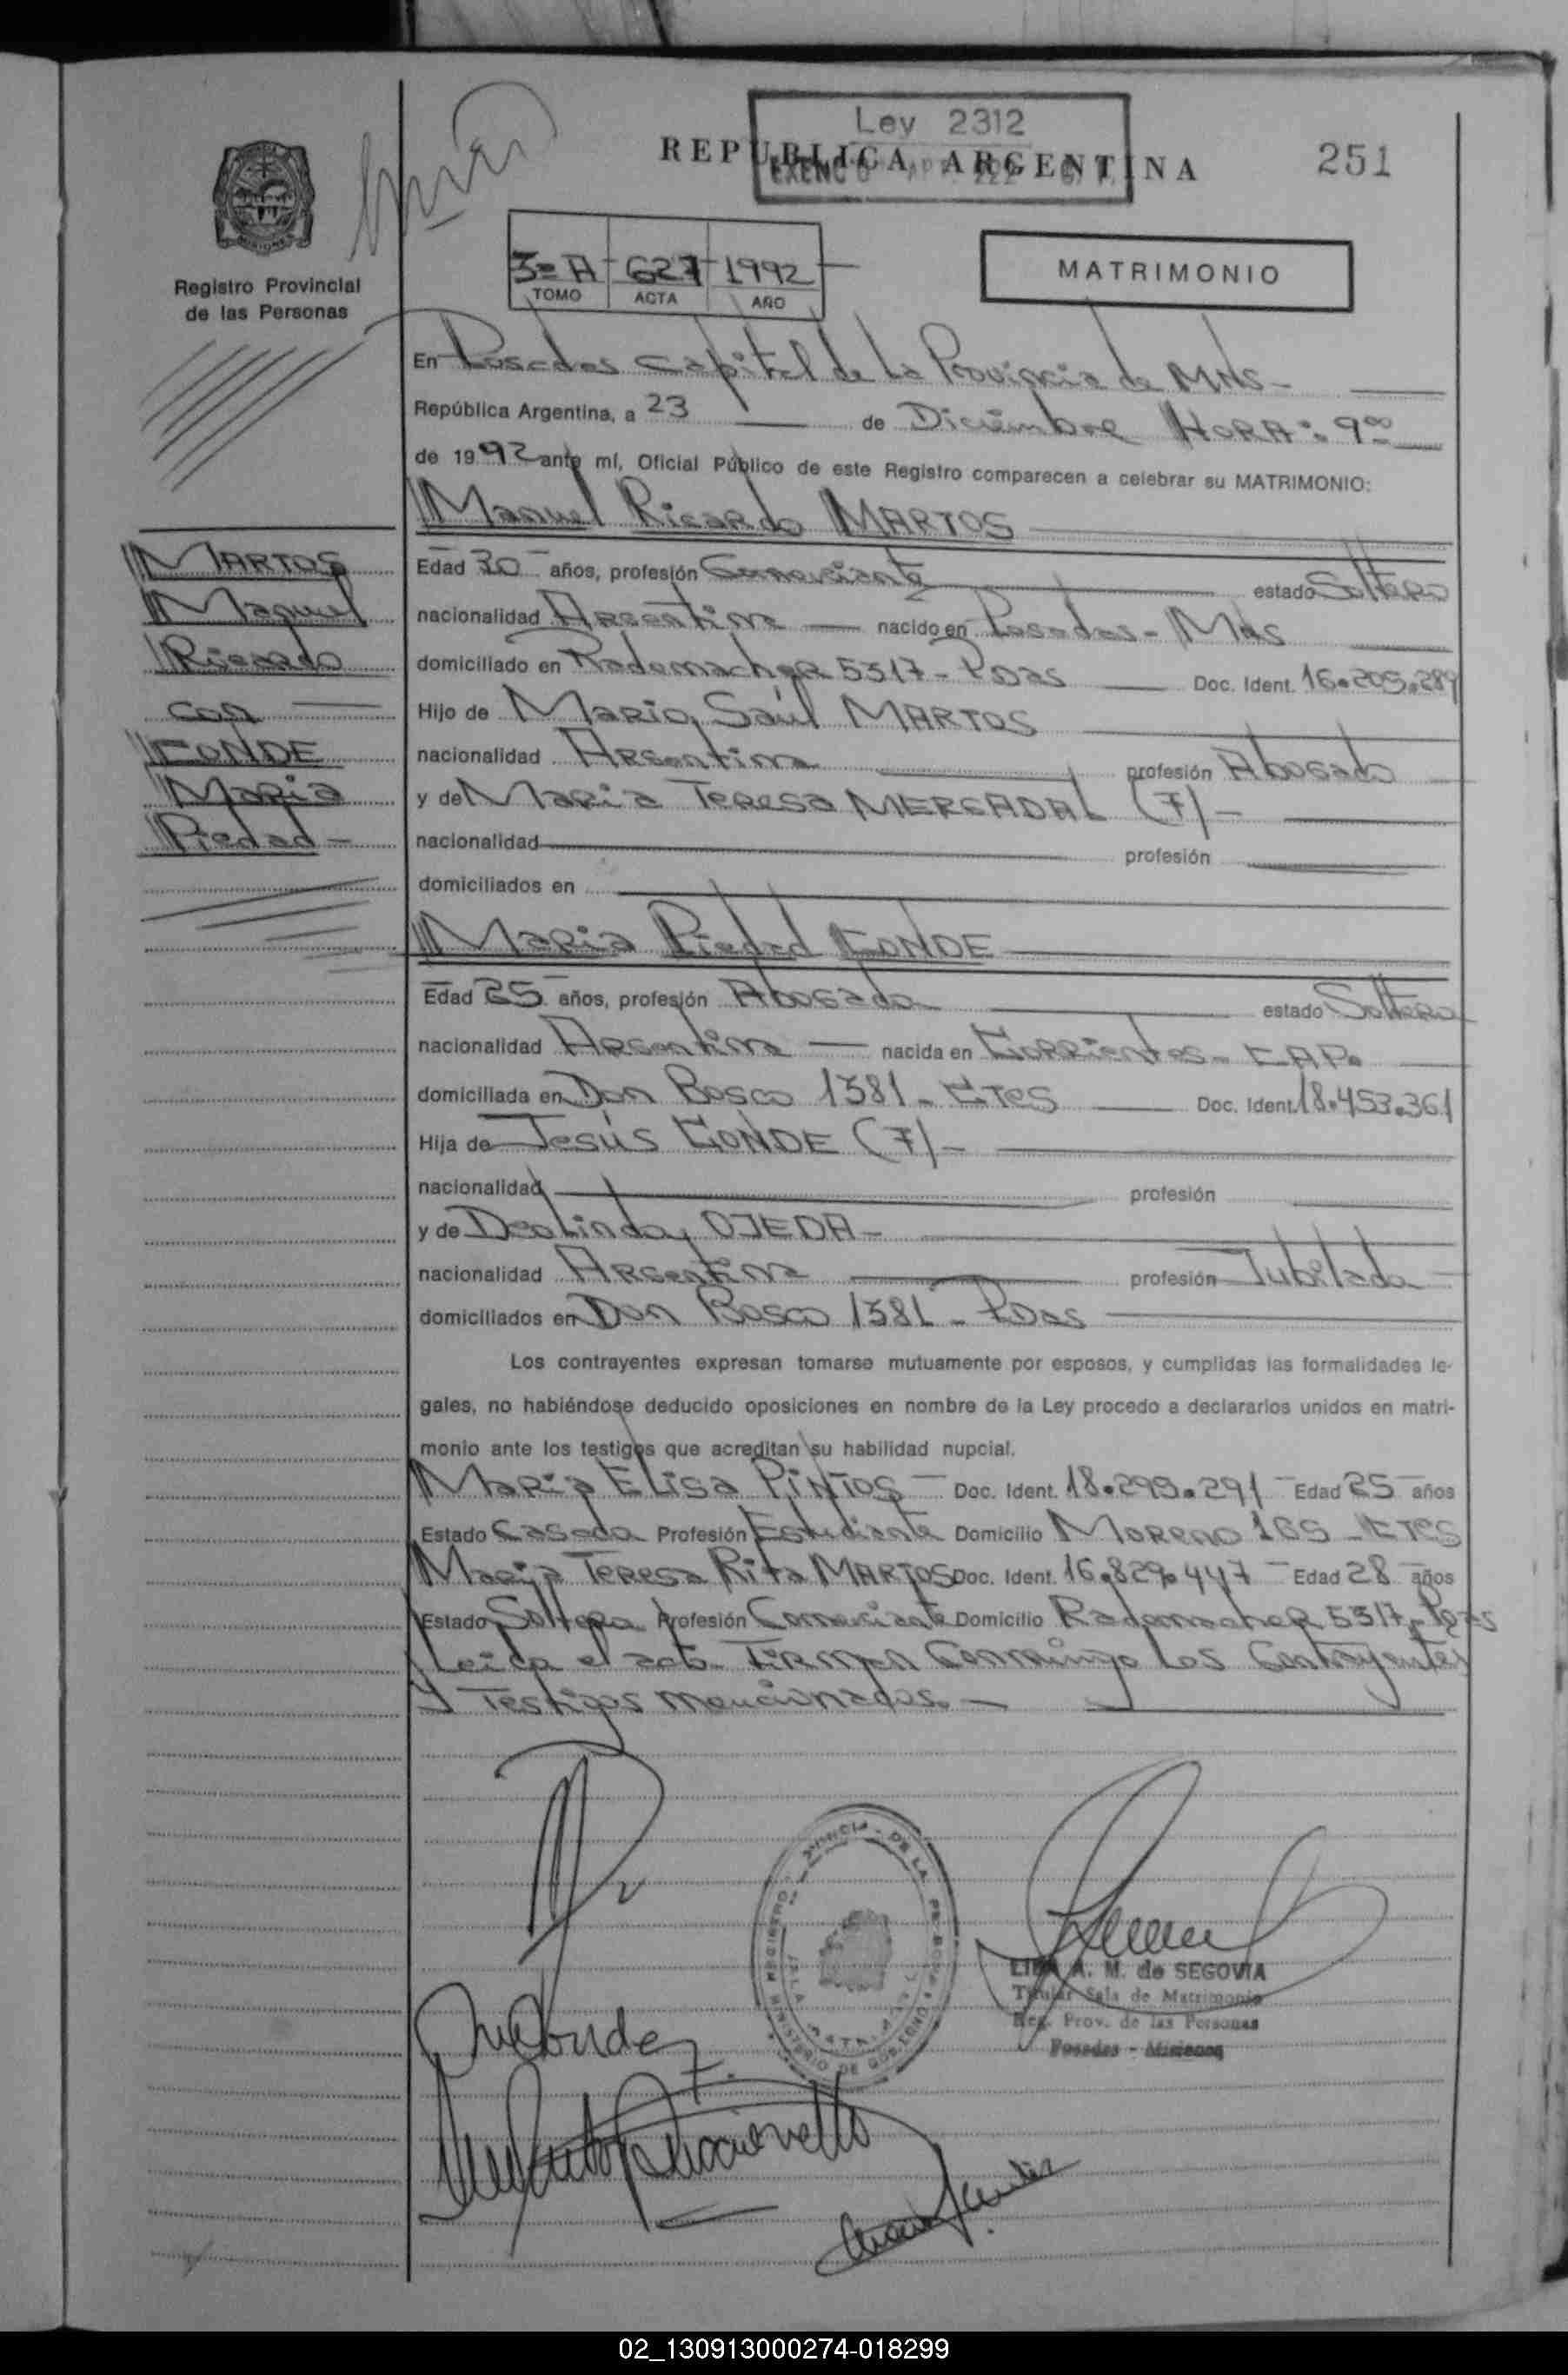 Ley 2312
REPUBLICA ARGENTINA
251
3º A 627 1992
TOMO ACTA AÑO
MATRIMONIO
MISIONES
Registro Provincial
de las Personas
En Posadas Capital de La Provincia de Mnes-
República Argentina, a 23 de Diciembre HORA: 900
de 1992 ante mí, Oficial Público de este Registro comparecen a celebrar su MATRIMONIO:
Manuel Ricardo MARTOS
MARTOS
Manuel
Ricardo
con
CONDE
Maria
Piedad-
Edad 30 años, profesión Comerciante estado Soltero
nacionalidad Argentina nacido en Posadas- Mnes
domiciliado en Rademacher 5317- Pdas Doc. Ident. 16.205.289
Hijo de Mario Saúl MARTOS
nacionalidad Argentina profesión Abogado
y de Maria Teresa MERCADAL (7)-
nacionalidad profesión
domiciliados en
Maria Piedad CONDE
Edad 25 años, profesión Abogada estado Soltera
nacionalidad Argentina nacida en Corrientes- CAP.
domiciliada en Don Bosco 1381- CTes Doc. Ident. 18.453.361
Hija de Jesús CONDE (7)-
nacionalidad profesión
y de Deolinda OJEDA-
nacionalidad Argentina profesión Jubilada
domiciliados en Don Bosco 1381- Pdas
Los contrayentes expresan tomarse mutuamente por esposos, y cumplidas las formalidades le-
gales, no habiéndose deducido oposiciones en nombre de la Ley procedo a declararlos unidos en matri-
monio ante los testigos que acreditan su habilidad nupcial.
Maria Elisa PiNTOS Doc. Ident. 18.295.291 Edad 25 años
Estado Casada Profesión Estudiante Domicilio Moreno 165- CTes
Maria Teresa Rita MARTOS Doc. Ident. 16.829.447 Edad 28 años
Estado Soltera Profesión Comerciante Domicilio Rademacher 5317- Pdas
Leida el acta Firman Conmingo Los Contrayentes
Y Testigos mencionados.-
A. M. de SEGOVIA
Titular Sala de Matrimonio
Reg. Prov. de las Personas
Posadas - Misiones
MINISTERIO DE GOBIERNO
02_130913000274-018299